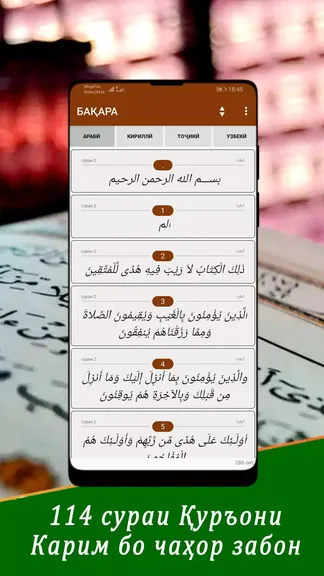 MegaFon
18:45
БАҚАРА
АРАБӢ КИРИЛЛӢ ТОҶИКӢ УЗБЕКӢ
сураи 2
بســـم الله الرحمن الرحيم
сураи 2 1
الم
сураи 2 2
ذَلِكَ الْكِتَابُ لاَ رَيْبَ فِيهِ هُدًى لِّلْمُتَّقِينَ
сураи 2 3
الَّذِينَ يُؤْمِنُونَ بِالْغَيْبِ وَيُقِيمُونَ الصَّلاةَ
وَمِمَّا رَزَقْنَاهُمْ يُنفِقُونَ
сураи 2 4
والَّذِينَ يُؤْمِنُونَ بِمَا أُنزِلَ إِلَيْكَ وَمَا أُنزِلَ
مِن قَبْلِكَ وَبِالآخِرَةِ هُمْ يُوقِنُونَ
сураи 2 5
أُوْلَـئِكَ عَلَى هُدًى مِّن رَّبِّهِمْ وَأُوْلَـئِكَ هُمُ
286 оят
114 сураи Қуръони
Карим бо чаҳор забон